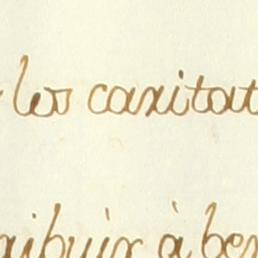 los caritat
ribuir à ben